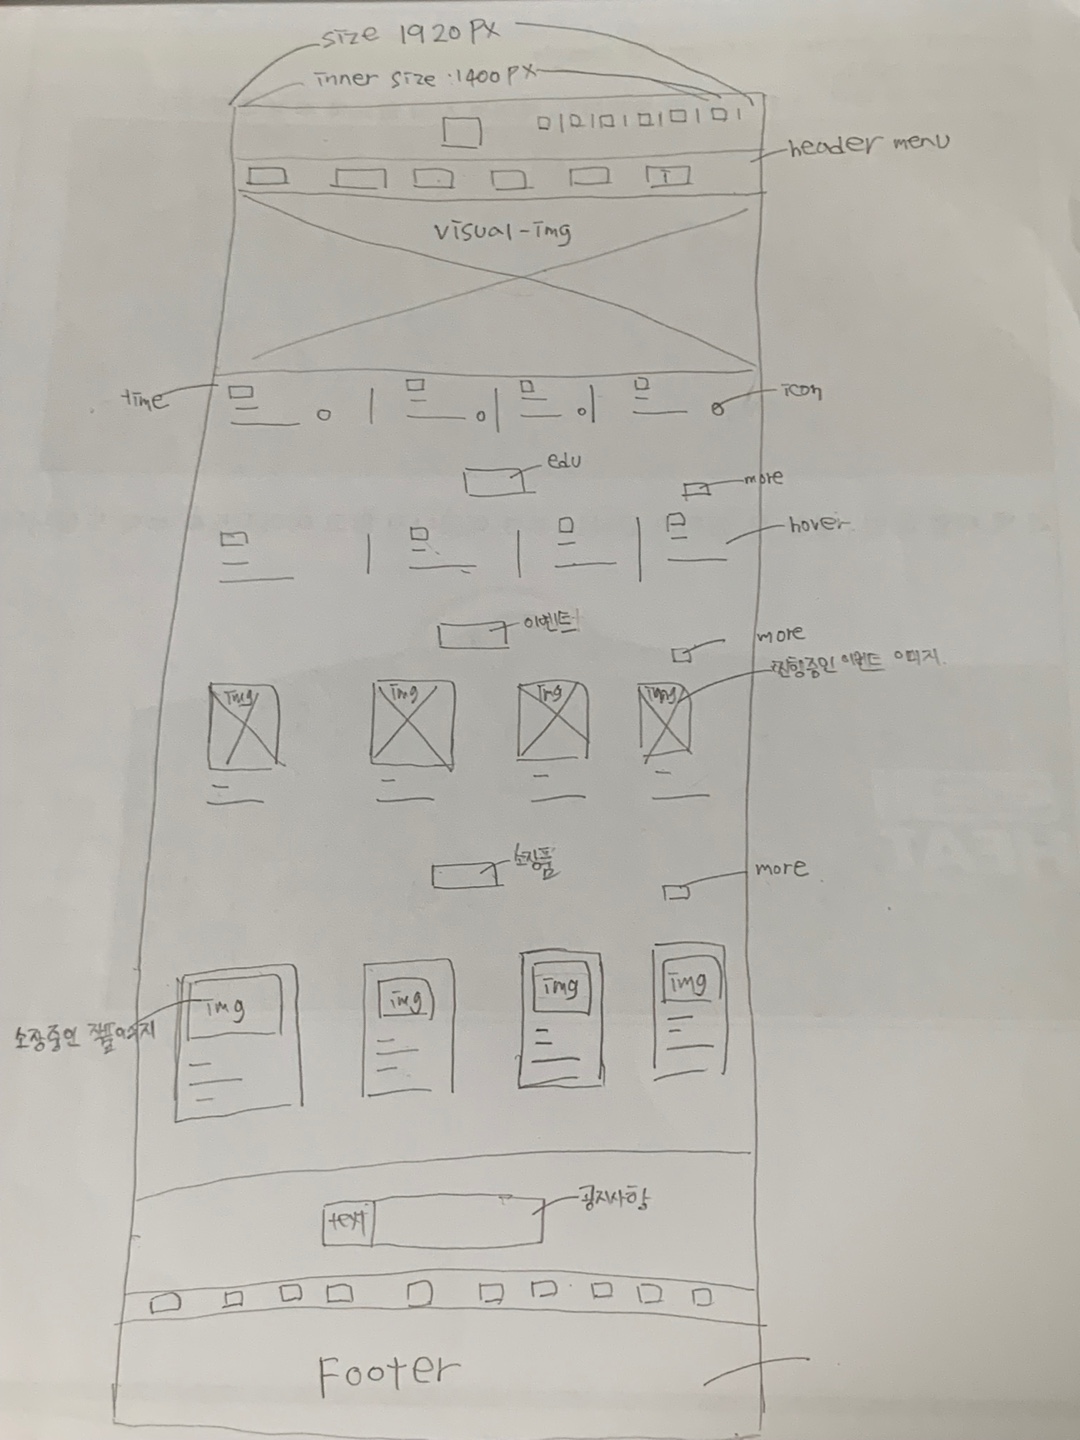 size 1920PX
inner size :1400PX
header menu
visual-img
time
icon
edu
more
hover
이벤트
more
진행중인 이벤트 이미지
img
img
img
img
소장품
more
img
img
img
img
소장중인 작품이미지
text
공지사항
Footer